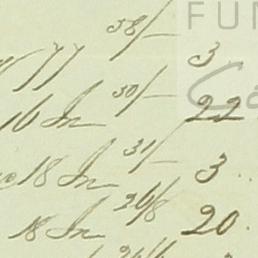 38/-
77 3
30/-
16 In 22
31/-
18 In 3
26/8
18 In 20
FUN